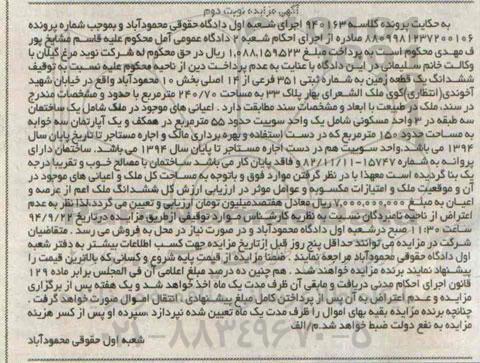 آگهی مزایده نوبت دوم
به حکایت پرونده کلاسه 940163 اجرای شعبه اول دادگاه حقوقی محمودآباد و بموجب شماره پرونده
8809981237200106 صادره از اجرای احکام شعبه 2 دادگاه عمومی آمل محکوم علیه قاسم مشایخ پور
ف مهدی محکوم است به پرداخت مبلغ 1,088,159523 ریال در حق محکوم له شرکت نوید مرغ گیلان با
وکالت خانم سلیمانی در این دادگاه با عنایت به عدم پرداخت دین از ناحیه محکوم علیه نسبت به توقیف
ششدانگ یک قطعه زمین به شماره ثبتی 351 فرعی از 14 اصلی بخش 10 محمودآباد واقع در خیابان شهید
آخوندی(انتظاری)کوی ملک الشعرای بهار پلاک 33 به مساحت 240/70 مترمربع با حدود و مشخصات مندرج
در سند، ملک در طبیعت با ابعاد و مشخصات سند مطابقت دارد . اعیانی های موجود در ملک شامل یک ساختمان
سه طبقه در 3 واحد مسکونی شامل یک واحد سوییت حدود 55 مترمربع در همکف و یک آپارتمان سه خوابه
به مساحت حدود 150 مترمربع که در دست استفاده و بهره برداری مالک و اجاره مستاجر تا تاریخ پایان سال
1394 می باشد.واحد سوییت هم در دست اجاره مستاجر تا پایان سال 1394 می باشند. ساختمان دارای
پروانه به شماره 15747-82/11/11 و فاقد پایان کار می باشد.ساختمان با مصالح خوب و تقریبا درجه
یک بنا گردیده است معهذا با در نظر گرفتن موارد فوق و باتوجه به مساحت کل ملک و اعیانی های موجود در
آن و موقعیت ملک و امتیازات مکسوبه و عوامل موثر در ارزیابی ارزش کل ششدانگ ملک اعم از عرصه و
اعیان به مبلغ 7,000,000,000 ریال معادل هفتصدمیلیون تومان ارزیابی و تعیین می گردد.لذا نظر به عدم
اعتراض از ناحیه نامبردگان نسبت به نظریه کارشناس موارد توقیفی از طریق مزایده درتاریخ 94/9/22
ساعت 11:30 صبح درشعبه اول دادگاه محمودآباد و در صورت نیاز در محل به فروش می رسد . متقاضیان
شرکت در مزایده می توانند حداقل پنج روز قبل ازتاریخ مزایده جهت کسب اطلاعات بیشتر به دفتر شعبه
اول دادگاه حقوقی محمودآباد مراجعه نمایند . ضمنا مزایده از قیمت پایه شروع و کسانی که بالاترین قیمت را
پیشنهاد نمایند برنده مزایده خواهند شد . هم چنین ده درصد مبلغ اعلامی آن فی المجلس برابر ماده 129
قانون اجرای احکام مدنی دریافت و مابقی آن ظرف مدت یک ماه اخذ خواهد شد و یک هفته پس از برگزاری
مزایده و عدم اعتراض به آن پس از پرداختن کامل مبلغ پیشنهادی ، انتقال اموال صورت خواهد گرفت .
چنانچه برنده مزایده بقیه بهای اموال را ظرف مدت یک ماه تعیین شده نپردازد ،سپرده او پس از کسر هزینه
مزایده به نفع دولت ضبط خواهد شد.م/الف
شعبه اول حقوقی محمودآباد
021-88349670-5